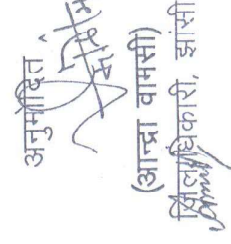 अनुमोदित
(आन्द्रा वामसी)
जिलाधिकारी, झांसी